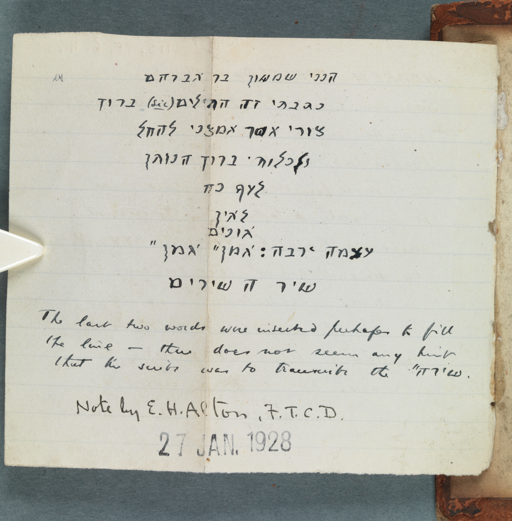 הנני שמשון בר אברהם
כתבתי זה התילים (sic) ברוך
צורי אשר אמצני להחל
ולכלות. ברוך הנותן
ליעף כח
לאין
אונים
עצמה ירבה: אמן" אמן"
שיר ה שירים
The last two words were inserted perhaps to fill
the line – there does not seem any hint
that the scribe was to transcribe the "שירה".
Note by E. H. Alton, F.T.C.D.
27 JAN. 1928